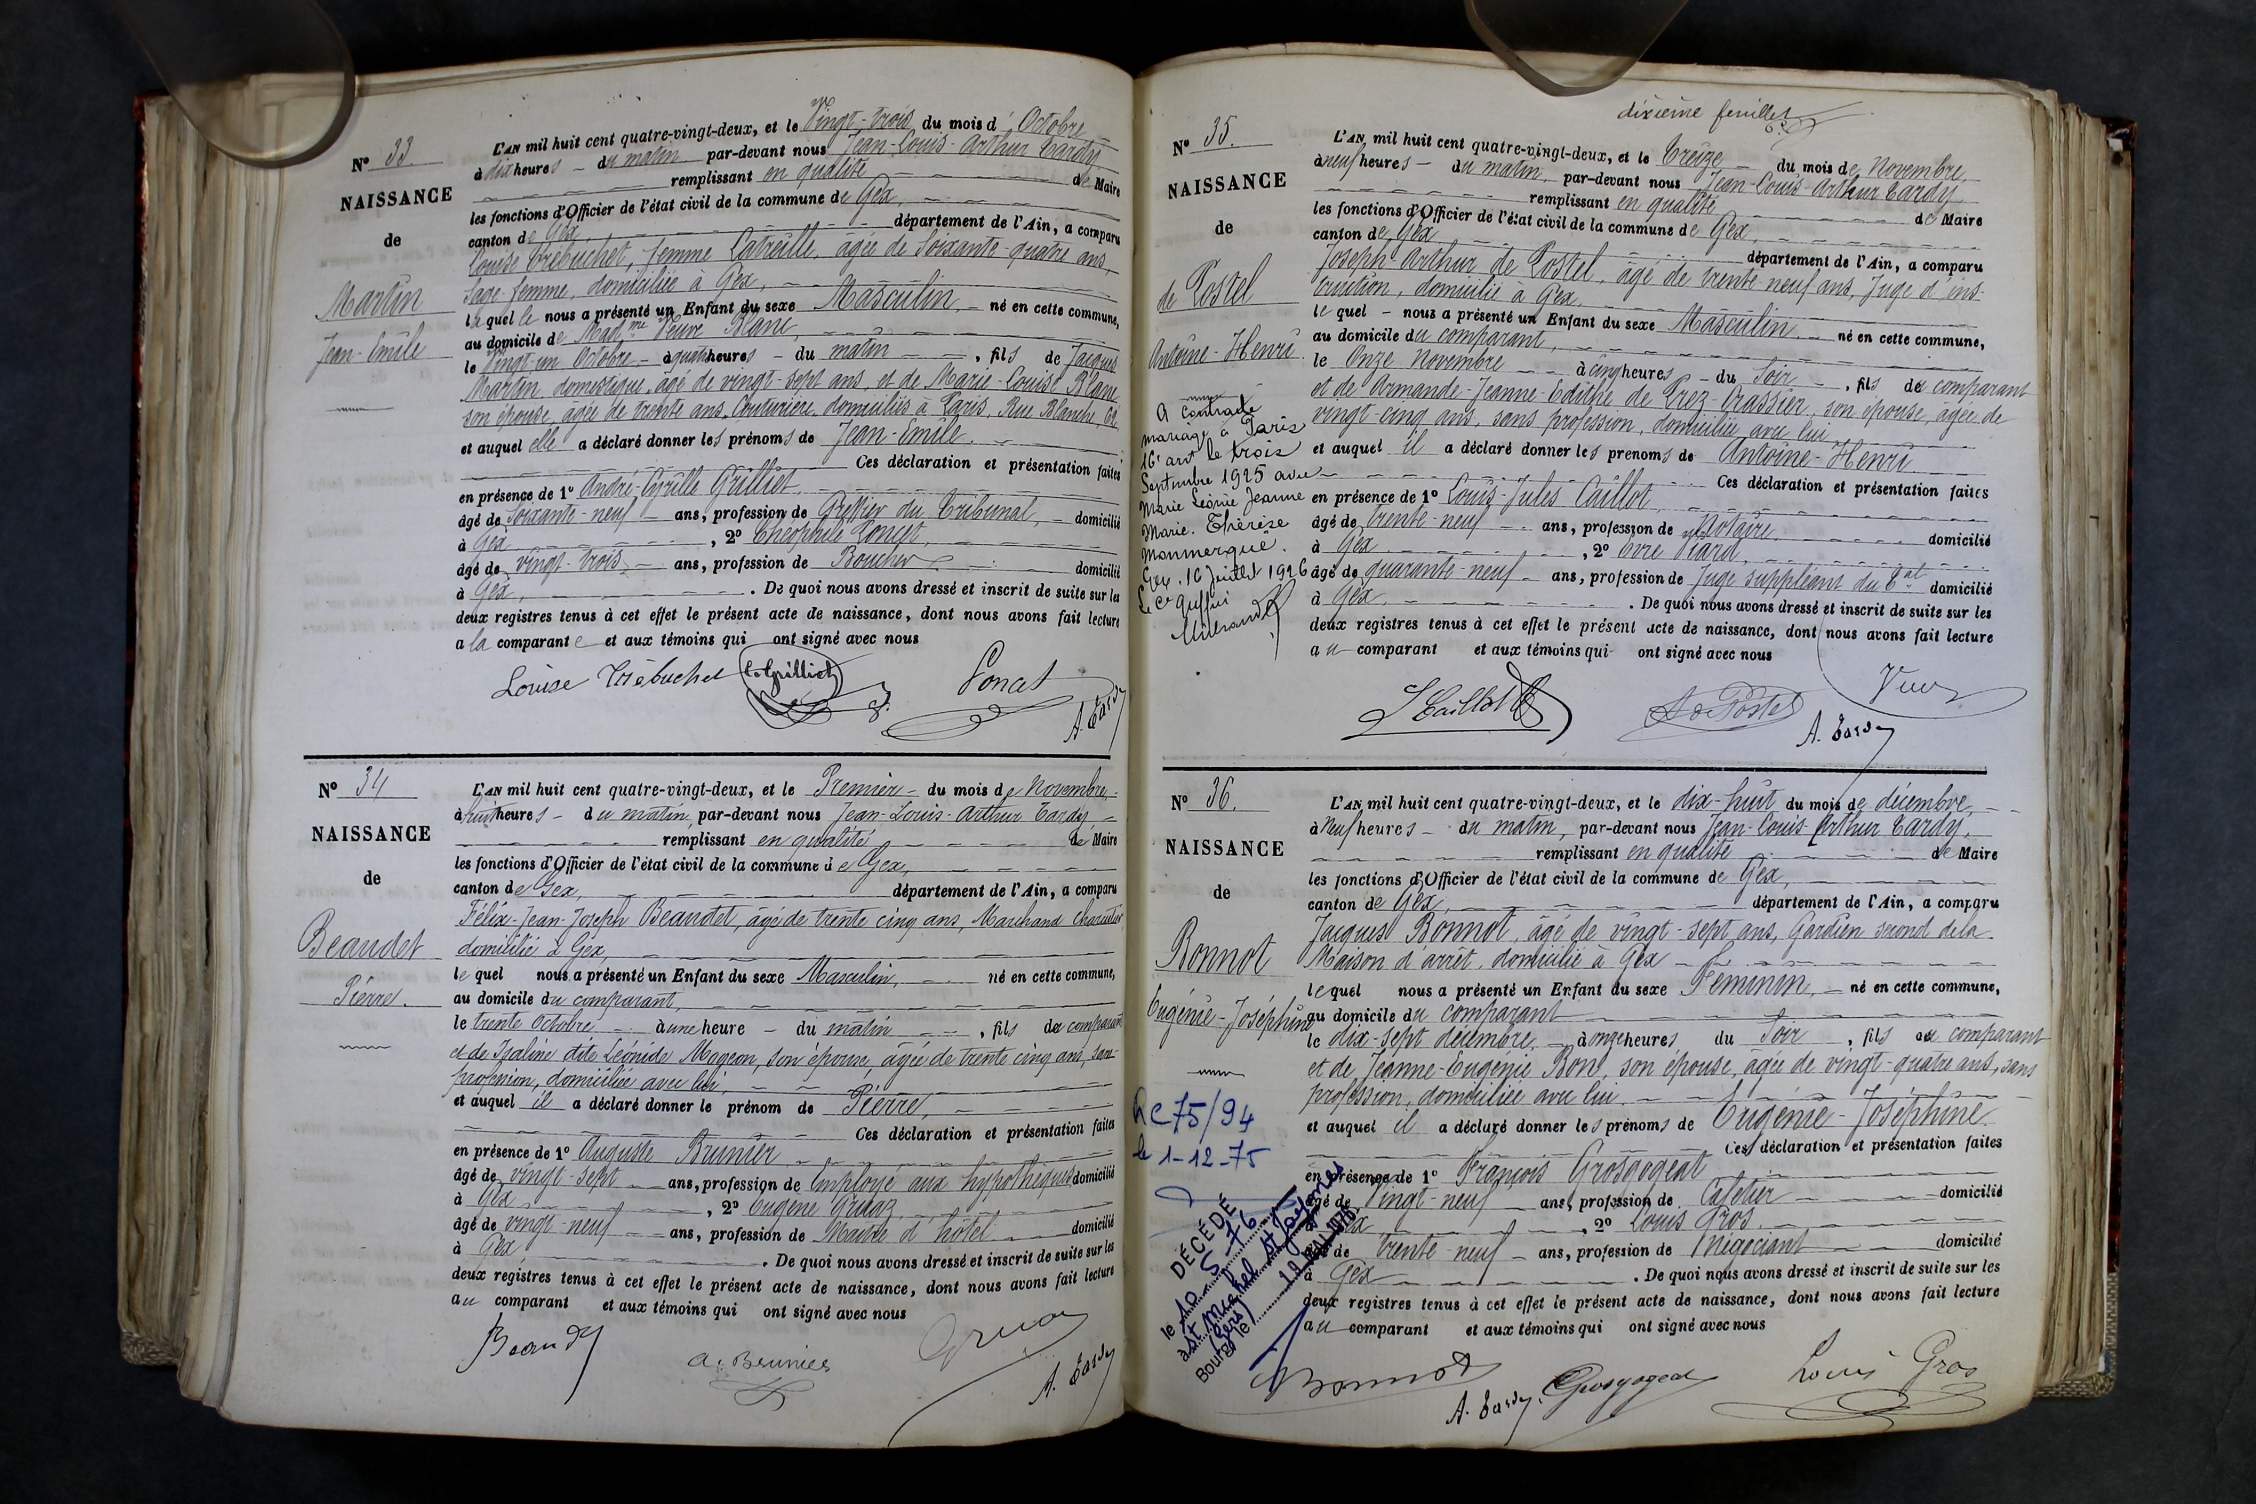 N° 33.
NAISSANCE
de
Martin
Jean-Emile
L'AN mil huit cent quatre-vingt-deux, et le Vingt-trois du mois d'Octobre
à dix heures du matin par-devant nous Jean-Louis-Arthur Tardy
remplissant en qualité de Maire
les fonctions d'Officier de l'état civil de la commune de Gex,
canton de Gex département de l'Ain, a comparu
Louise Trébuchet, femme Latreille, âgée de soixante-quatre ans,
sage femme, domiciliée à Gex,
laquelle nous a présenté un Enfant du sexe Masculin, né en cette commune,
au domicile de Mad.me Veuve Blanc,
le vingt-un Octobre à quatre heures du matin, fils de Jacques
Martin domestique, âgé de vingt-sept ans, et de Marie-Louise Blanc
son épouse, agée de trente ans, Couturière, domiciliés à Paris, Rue Blanche,
et auquel elle a déclaré donner les prénoms de Jean-Emile.
Ces déclaration et présentation faites
en présence de 1° André-Cyrille Grilliet
âgé de soixante-neuf ans, profession de Greffier du Tribunal, domicilié
à Gex, 2° Théophile Poncet,
âgé de vingt-trois ans, profession de Boucher domicilié
à Gex, . De quoi nous avons dressé et inscrit de suite sur les
deux registres tenus à cet effet le présent acte de naissance, dont nous avons fait lecture
a la comparante et aux témoins qui ont signé avec nous
Louise Trébuchet C. Grilliet Poncet
A. Tardy
N° 34
NAISSANCE
de
Beaudet
Pierre.
L'AN mil huit cent quatre-vingt-deux, et le Premier du mois de Novembre,
à huit heures du matin, par-devant nous Jean-Louis-Arthur Tardy,
remplissant en qualité de Maire
les fonctions d'Officier de l'état civil de la commune de Gex,
canton de Gex, département de l'Ain, a comparu
Félix-Jean-Joseph Beaudet, âgé de trente cinq ans, Marchand Charcutier
domicilié à Gex,
lequel nous a présenté un Enfant du sexe Masculin, né en cette commune,
au domicile du comparant,
le trente Octobre à une heure du matin, fils du comparant
et de Isaline dite Léonide Mageon, son épouse, âgée de trente cinq ans, sans
profession, domiciliée avec lui,
et auquel il a déclaré donner le prénom de Pierre,
Ces déclaration et présentation faites
en présence de 1° Auguste Brunier
âgé de vingt-sept ans, profession de Employé aux hypothèques domicilié
à Gex, 2° Eugène Gruaz
âgé de vingt-neuf ans, profession de Maître d'hôtel domicilié
à Gex . De quoi nous avons dressé et inscrit de suite sur les
deux registres tenus à cet effet le présent acte de naissance, dont nous avons fait lecture
au comparant et aux témoins qui ont signé avec nous
Beaudet
a. Brunier
Gruaz
A. Tardy
dixième feuillet
N° 35.
NAISSANCE
de
de Postel
Antoine-Henri.
A contracté
mariage à Paris
16e art le trois
Septembre 1925 avec
Marie Léonie Jeanne
Marie. Thérèse
Monmerqué.
Gex. 10 Juillet 1926
Le Cs Greffier
L'AN mil huit cent quatre-vingt-deux, et le Treize du mois de Novembre,
à neuf heures du matin, par-devant nous Jean-Louis-Arthur Tardy
remplissant en qualité de Maire
les fonctions d'Officier de l'état civil de la commune de Gex,
canton de Gex département de l'Ain, a comparu
Joseph Arthur de Postel, âgé de trente neuf ans, Juge d'ins-
truction, domicilié à Gex,
lequel nous a présenté un Enfant du sexe Masculin né en cette commune,
au domicile du comparant,
le Onze Novembre à cinq heures du soir, fils du comparant
et de Armande-Jeanne-Edithe de Prez-Crassier, son épouse, âgée de
vingt-cinq ans, sans profession, domiciliée avec lui
et auquel il a déclaré donner les prénoms de Antoine-Henri
Ces déclaration et présentation faites
en présence de 1° Louis-Jules Caillot,
âgé de trente-neuf ans, profession de Notaire domicilié
à Gex, 2°
âgé de quarante-neuf ans, profession de Juge suppléant du Tal domicilié
à Gex . De quoi nous avons dressé et inscrit de suite sur les
deux registres tenus à cet effet le présent acte de naissance, dont nous avons fait lecture
au comparant et aux témoins qui ont signé avec nous
J Caillot A de Postel
A. Tardy
N° 36.
NAISSANCE
de
Bonnot
Eugénie-Joséphine
RC 75/94
le 1-12-75
DÉCÉDÉ
le 10 5 76
à St Michel
Gers
Bourg, le
L'AN mil huit cent quatre-vingt-deux, et le dix-huit du mois de décembre,
à neuf heures du matin, par-devant nous Jean-Louis-Arthur Tardy,
remplissant en qualité de Maire
les fonctions d'Officier de l'état civil de la commune de Gex,
canton de Gex, département de l'Ain, a comparu
Jacques Bonnot, âgé de vingt-sept ans, Gardien second de la
Maison d'arrêt, domicilié à Gex
lequel nous a présenté un Enfant du sexe Féminin, né en cette commune,
au domicile du comparant
le dix-sept décembre à onze heures du soir, fils du comparant
et de Jeanne-Eugénie Bon, son épouse, âgée de vingt-quatre ans, sans
profession, domiciliée avec lui
et auquel il a déclaré donner les prénoms de Eugénie-Joséphine
Ces déclaration et présentation faites
en présence de 1° François Grosgogeat
âgé de Vingt-neuf ans, profession de Cafetier domicilié
à Gex, 2° Louis Gros
âgé de trente-neuf ans, profession de Négociant domicilié
à Gex . De quoi nous avons dressé et inscrit de suite sur les
deux registres tenus à cet effet le présent acte de naissance, dont nous avons fait lecture
au comparant et aux témoins qui ont signé avec nous
Bonnot A. Tardy Grosgogeat Louis Gros